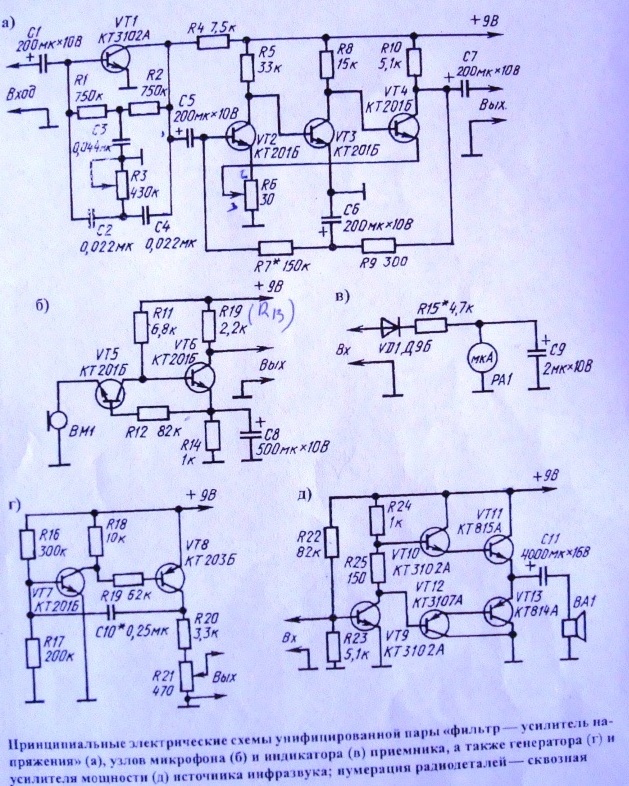 а)
C1
200мк×10В
VT1
КТ3102А
R4 7,5к
+9В
R5
33к
R8
15к
R10
5,1к
C7
200мк×10В
Вход
R1
750к
R2
750к
C5
200мк×10В
VT4
КТ201Б
Вых.
C3
0,044мк
VT2
КТ201Б
VT3
КТ201Б
R3
430к
R6
30
C6
200мк×10В
C2
0,022мк
C4
0,022мк
R7* 150к
R9 300
б)
+9В
R11
6,8к
R19
2,2к
(R13)
VT5
КТ201Б
VT6
КТ201Б
Вых
BM1
R12 82к
R14
1к
C8
500мк×10В
в)
R15* 4,7к
Вх
VD1 Д9Б
мкА
PA1
C9
2мк×10В
г)
+9В
R16
300к
R18
10к
VT8
КТ203Б
VT7
КТ201Б
R19 62к
C10* 0,25мк
R20
3,3к
R17
200к
R21
470
Вых
д)
+9В
R24
1к
VT11
КТ815А
R22
82к
C11
4000мк×16В
R25
150
VT10
КТ3102А
VT12
КТ3107А
VT13
КТ814А
BA1
Вх
R23
5,1к
VT9
КТ3102А
Принципиальные электрические схемы унифицированной пары «фильтр — усилитель на-
пряжения» (а), узлов микрофона (б) и индикатора (в) приемника, а также генератора (г) и
усилителя мощности (д) источника инфразвука; нумерация радиодеталей — сквозная